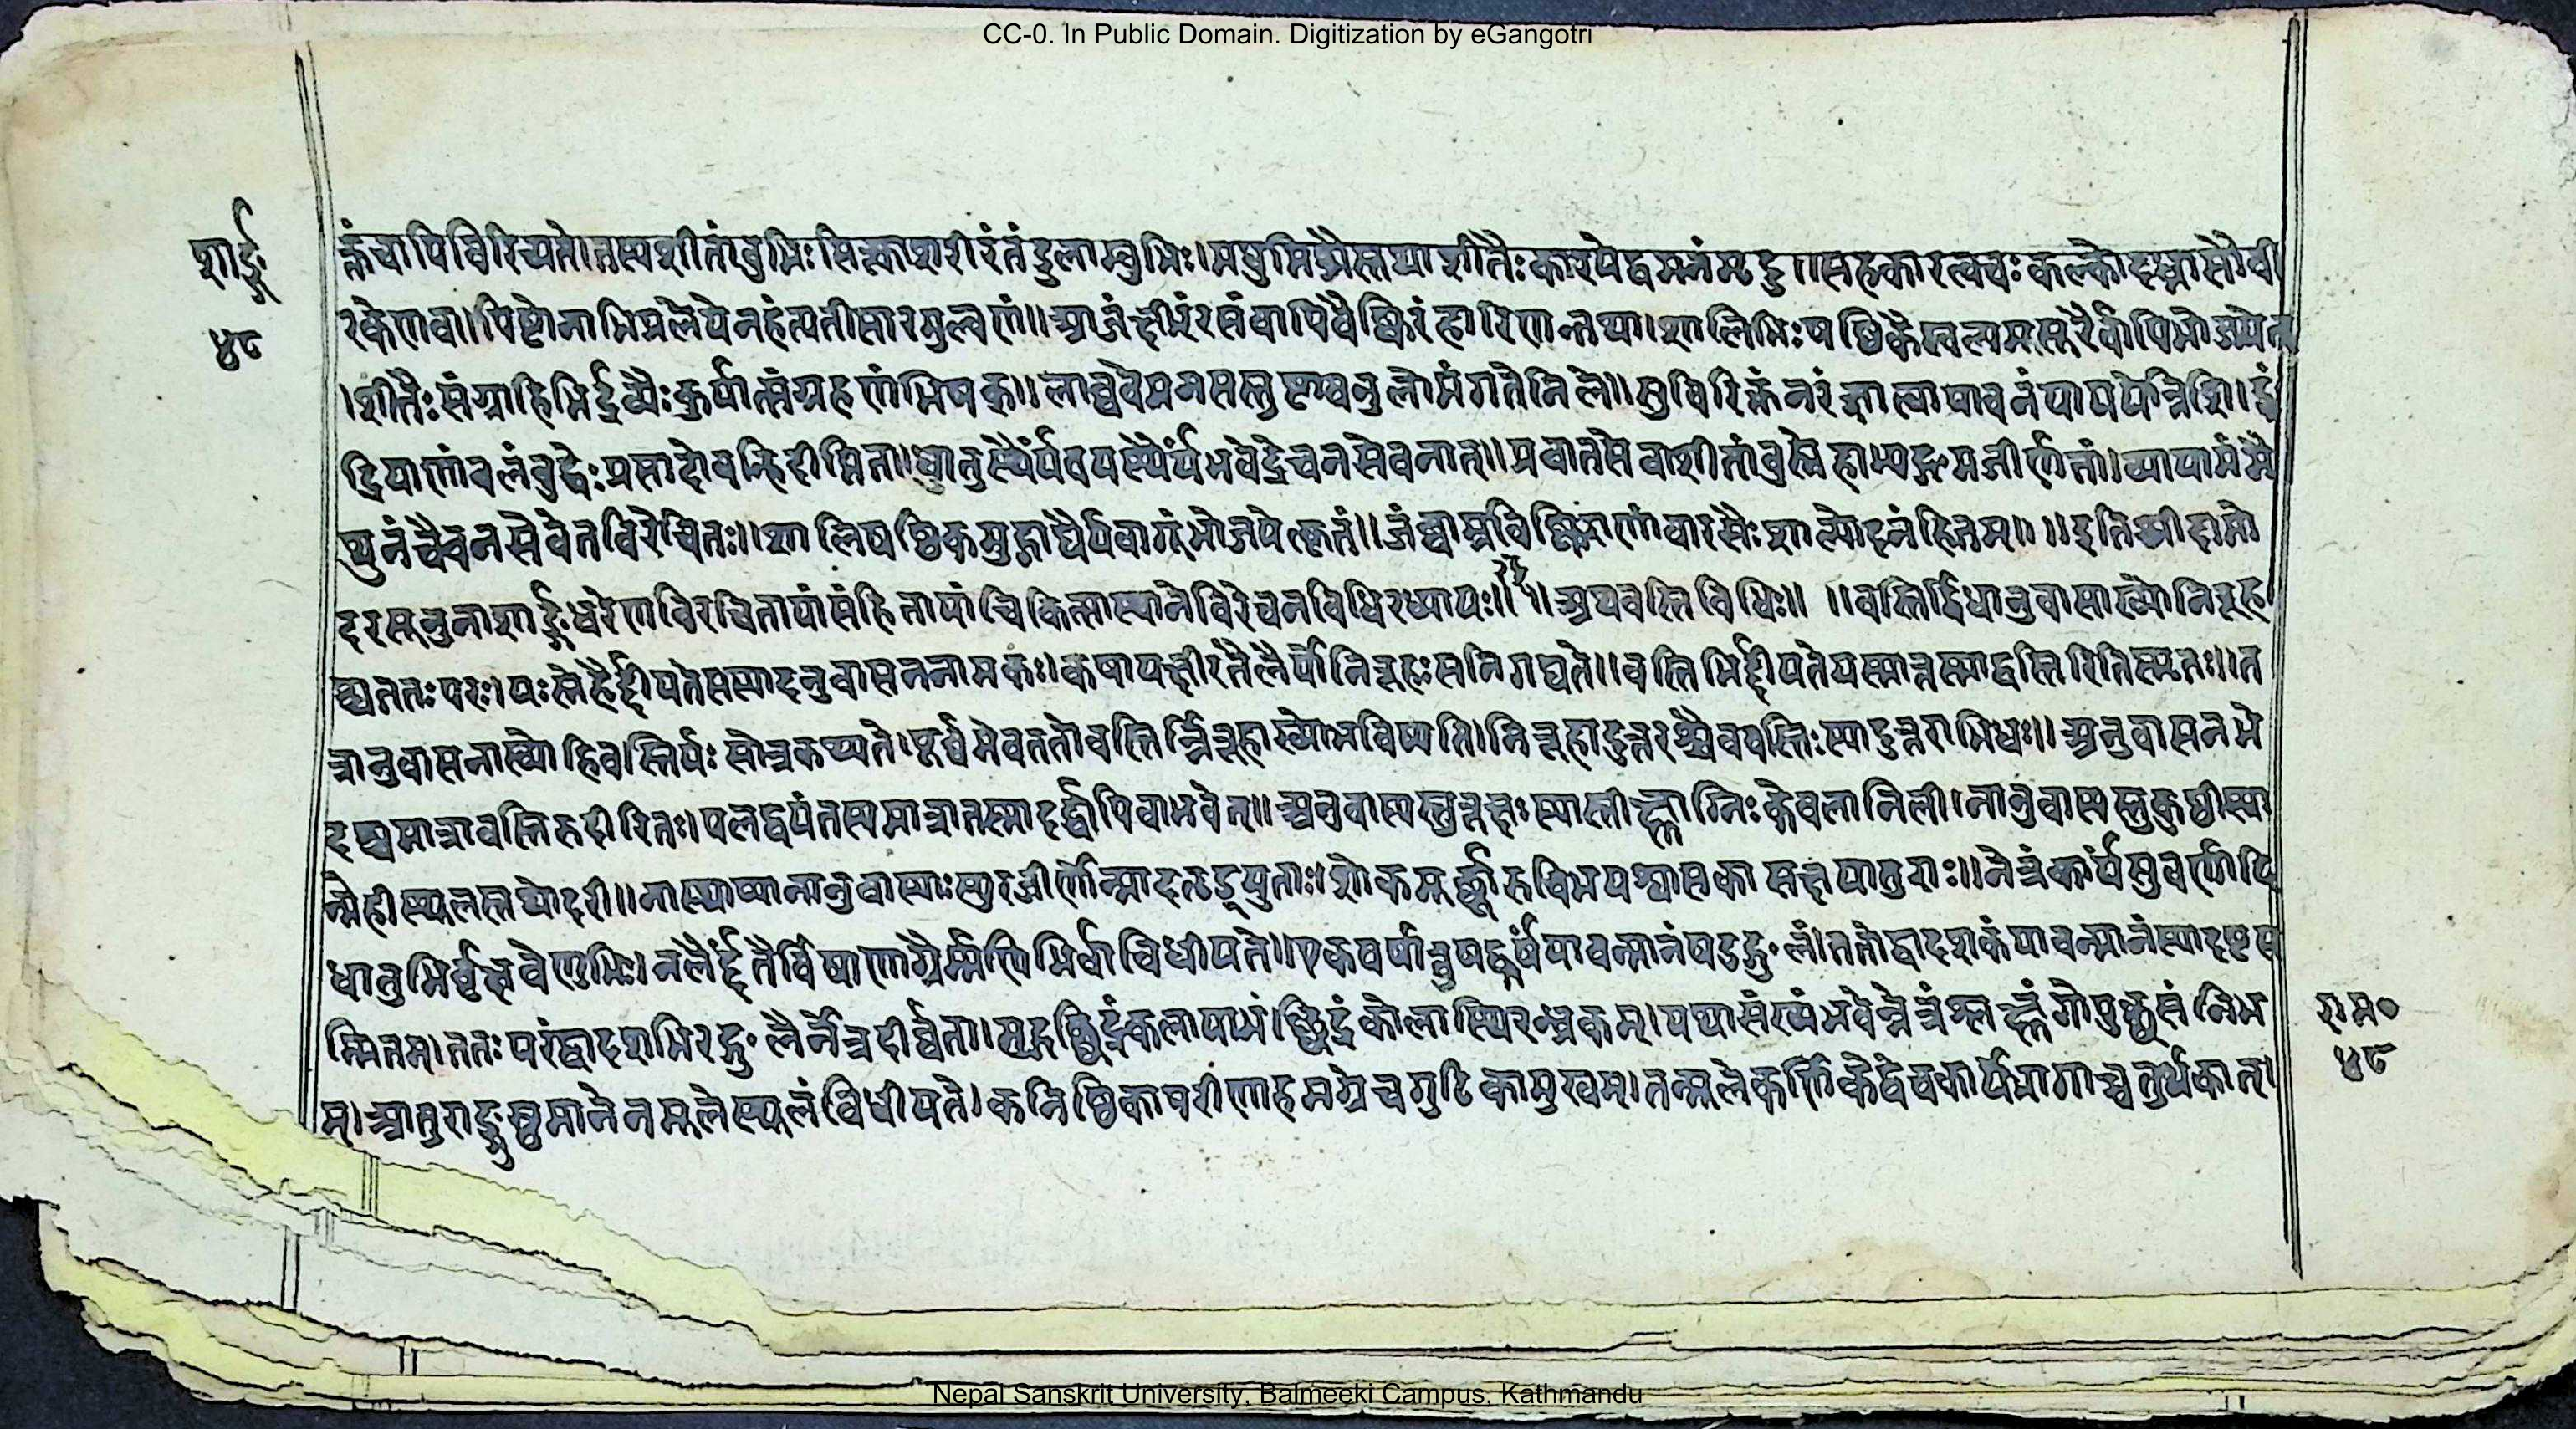 CC-0. In Public Domain. Digitization by eGangotri
शार्ङ्ग
४८
क्तंचापिविरिच्यते।तस्यशीतांबुभिःसिक्त्वाशरीरंतंडुलाम्बुभिः।मधुमिश्रैस्तथाशीतैःकारयेद्वमनंमृदु॥सहकारत्वचःकल्कोदध्नासौवी
रकेणवा।पिष्टोनाभिप्रलेपेनहंत्यतीसारमुल्वणं॥आजंक्षीरंरसंवापिवैष्किरंहारिणन्तथा।शालिभिःषष्ठिकैस्वल्पमसूरैर्वापिभोजयेत्
।शीतैःसंग्राहिभिर्द्रव्यैःकुर्यात्संग्रहणंभिषक्॥लाघवेमनसस्तुष्टावनुलोमंगतेनिले॥सुविरिक्तंनरंज्ञात्वापाचनंपाययेन्निशि।इं
द्रियाणांबलंबुद्धेःप्रसादोवन्हिदीप्तिता॥धातुस्थैर्यंवयस्थैर्यंभवेद्रेचनसेवनात्॥प्रवातसेवाशीतांबुस्नेहाभ्यङ्गमजीर्णतां।व्यायामंमै
थुनंचैवनसेवेतविरेचितः॥शालिषष्ठिकमुद्गाद्यैर्यवागूंभोजयेत्कृतं॥जंघालविष्किराणांवारसैःशाल्योदनंहितम्॥ ॥इतिश्रीदामो
दरसूनुनाशार्ङ्गधरेणविरचितायांसंहितायांचिकित्सास्थानेविरेचनविधिरध्यायः॥ ॥अथवस्तिविधिः॥ ॥वस्तिर्द्विधानुवासाख्योनिरूह
श्चततःपरः।यःस्नेहैर्द्दीयतेसस्यादनुवासननामकः।कषायक्षीरतैलैर्योनिरूहःसनिगद्यते॥वस्तिभिर्द्दीयतेयस्मात्तस्माद्वस्तिरितिस्मृतः॥त
त्रानुवासनाख्योहिवस्तिर्यःसोत्रकथ्यते।पूर्वमेवततोवस्तिर्न्निरूहाख्योभविष्यति।निरूहादुत्तरश्चैववस्तिःस्यादुत्तराभिधः॥अनुवासनभे
दश्चमात्रावस्तिरुदीरितः।पलद्वयंतस्यमात्रातस्मादर्द्धापिवाभवेत्॥अनुवास्यस्तुरूक्षःस्यात्तीक्ष्णाग्निःकेवलानिली।नानुवास्यस्तुकुष्ठीस्या
न्मेहीस्थूलस्तथोदरी॥नास्थाप्यानानुवास्याःस्युरजीर्णोन्मादतृड्युताः।शोकमूर्छारुचिभयश्वासकासक्षयातुराः॥नेत्रंकार्यंसुवर्णादि
धातुभिर्वृक्षवेणुभिः।नलैर्द्दन्तैर्विषाणाग्रैर्म्मणिभिर्वाविधीयते॥एकवर्षात्तुषड्वर्षंयावन्मानंषडङ्गुलं।ततोद्वादशकंयावन्मानंस्यादष्टस
म्मितम्।ततःपरंद्वादशभिरङ्गुलैर्नेत्रदीर्घता।मुद्गछिद्रंकलायाभंछिद्रंकोलास्थिरन्ध्रकम्।यथासंख्यंभवेन्नेत्रंश्लक्ष्णंगोपुच्छसंनिभ
म्।आतुराङ्गुष्ठमानेनमूलेस्थूलंविधीयते।कनिष्ठिकापरीणाहमग्रेचगुटिकामुखम्।तन्मूलेकर्णिकेद्वेचकार्येभागाच्चतुर्थकात्।
राम०
४८
Nepal Sanskrit University, Balmeeki Campus, Kathmandu